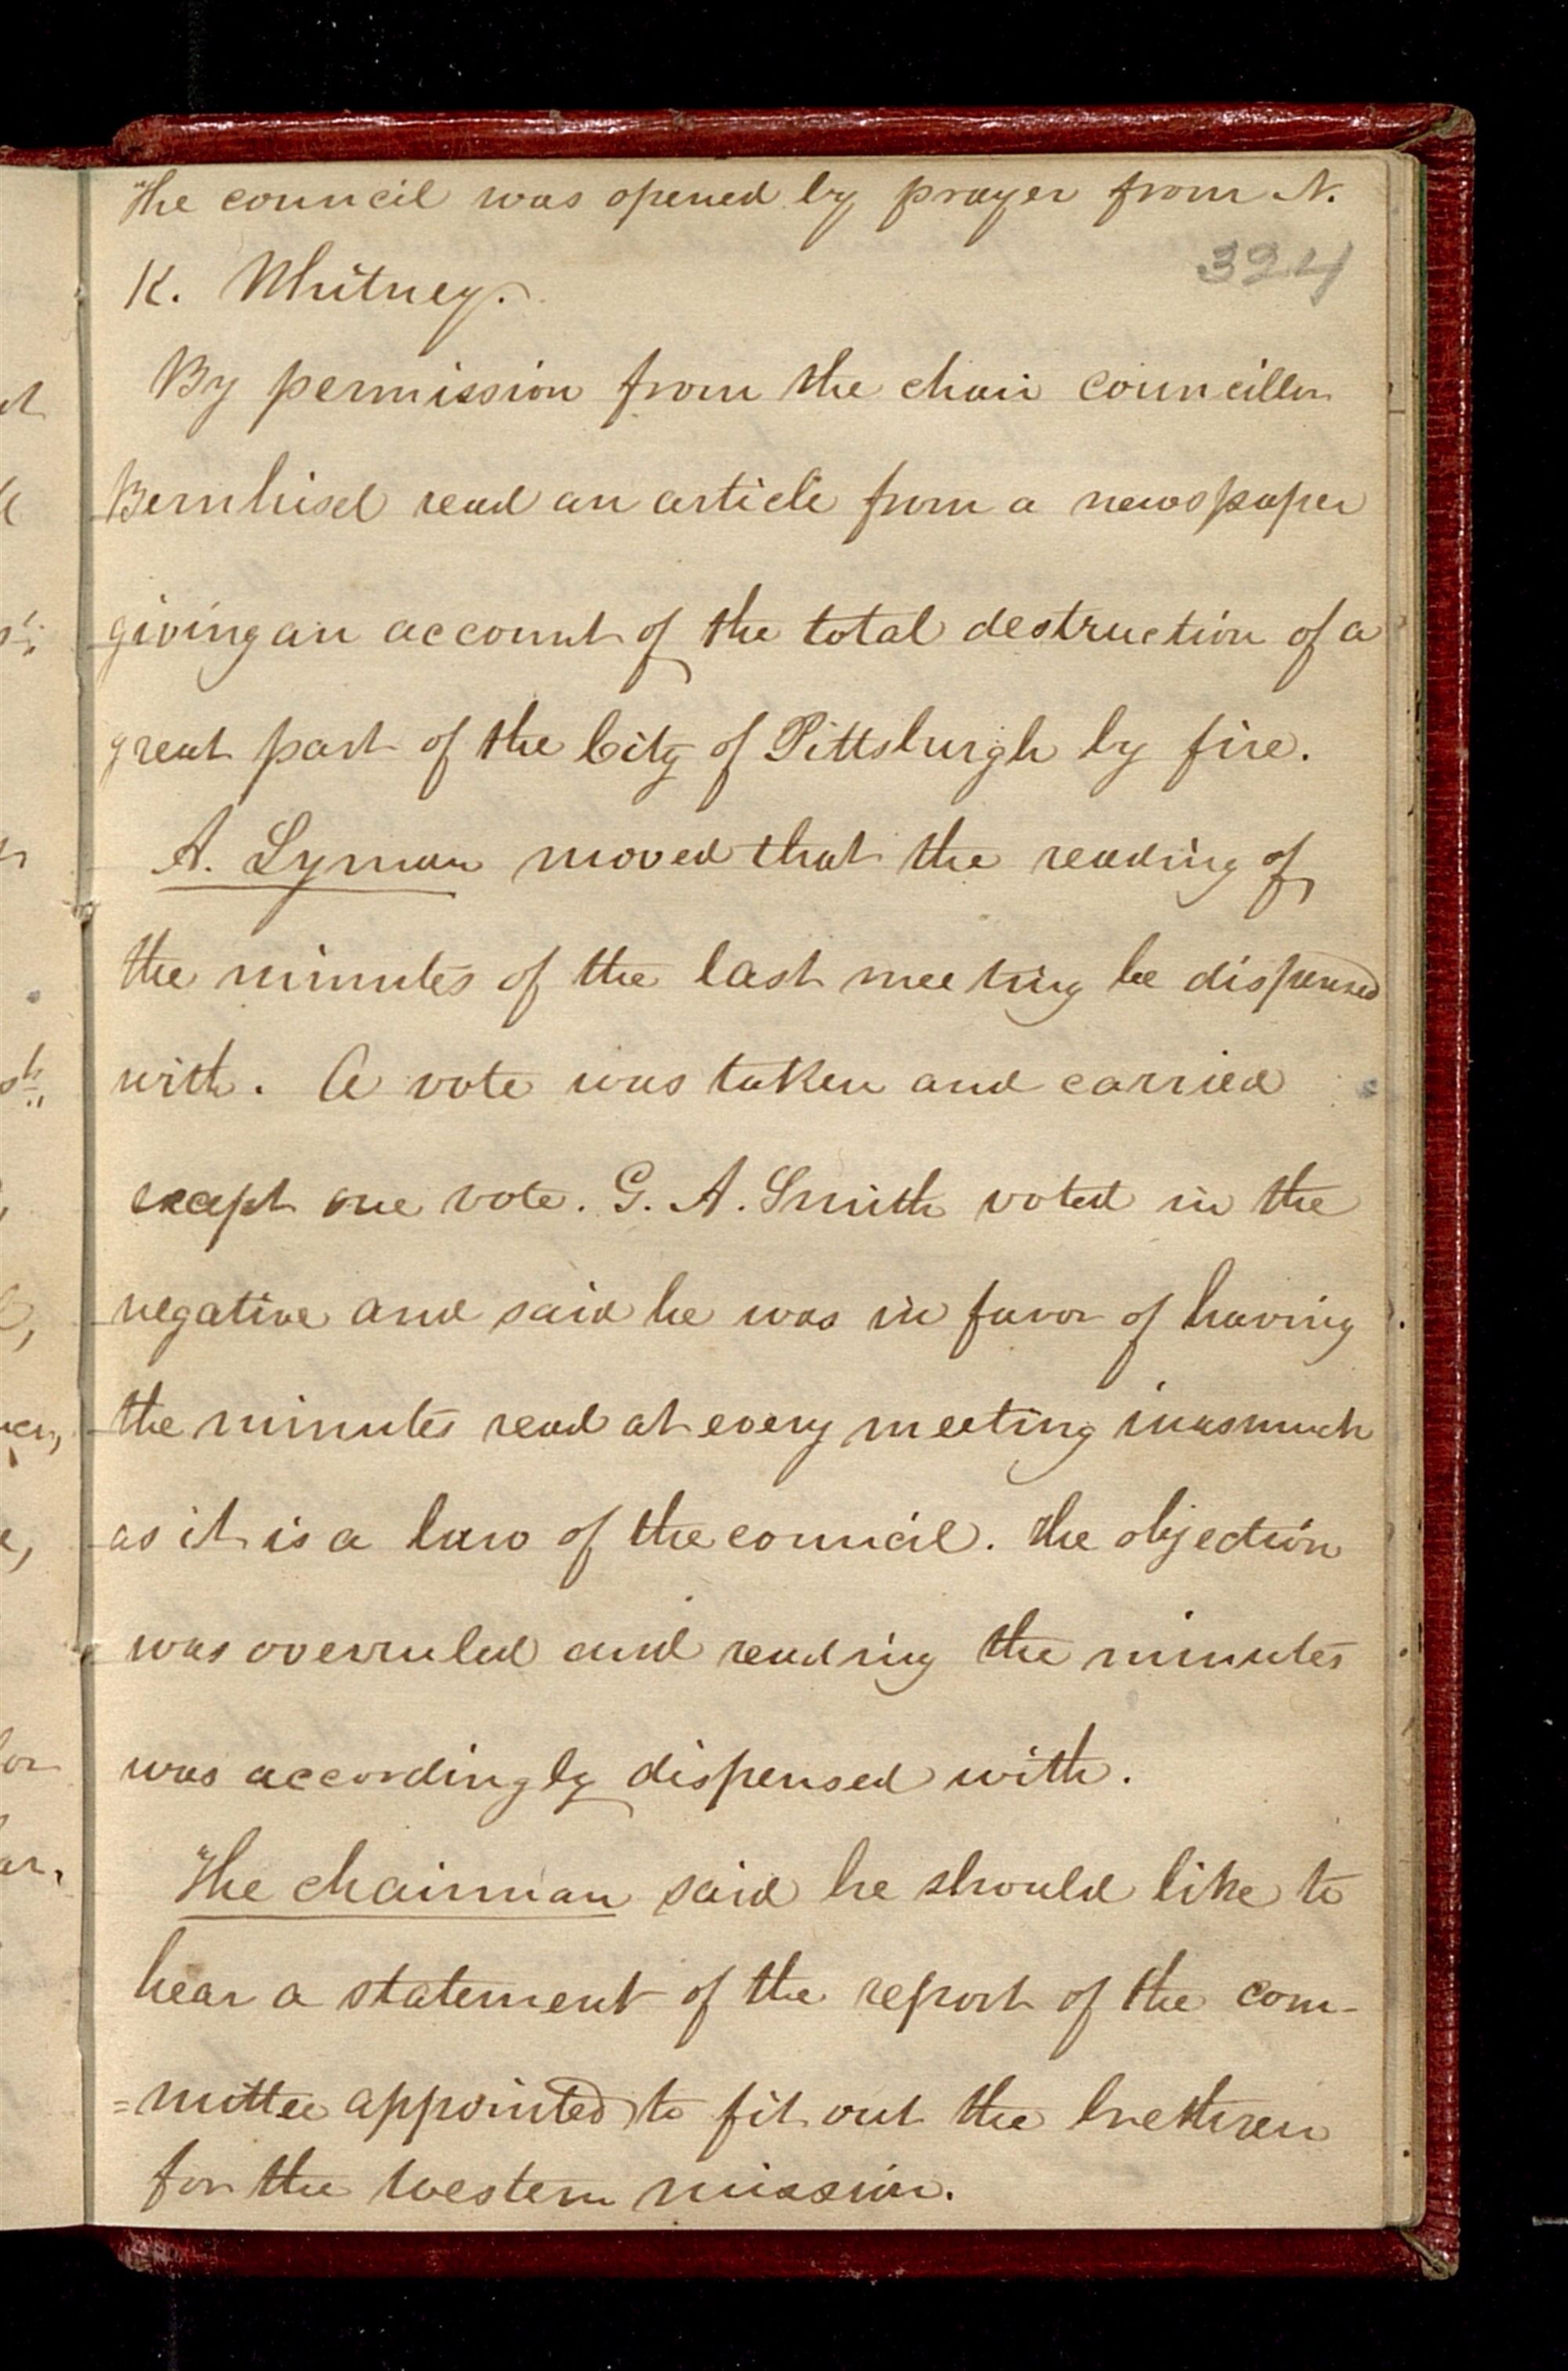 The council was opened by prayer from N.
324
K. Whitney.
By permission from the chair councillor
Bernhisel read an article from a newspaper
giving an account of the total destruction of a
great part of the City of Pittsburgh by fire.
A. Lyman moved that the reading of
the minutes of the last meeting be dispensed
with. A vote was taken and carried
except one vote. G. A. Smith voted in the
negative and said he was in favor of having
the minutes read at every meeting inasmuch
as it is a law of the council. The objection
was overruled and reading the minutes
was accordingly dispensed with.
The chairman said he should like to
hear a statement of the report of the com-
=mittee appointed to fit out the brethren
for the western mission.